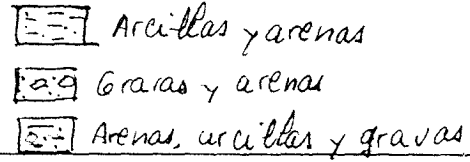 Arcillas y arenas
Gravas y arenas
Arenas, arcillas y gravas